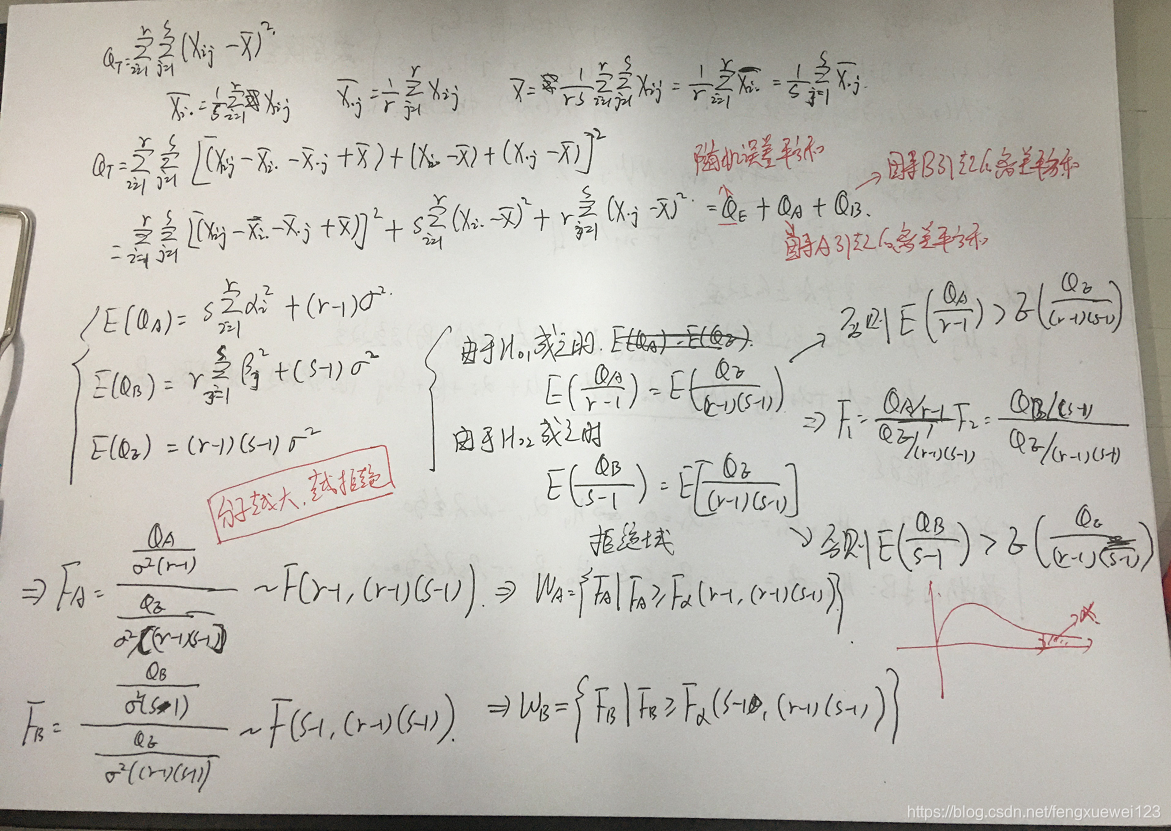 Q_T = \sum_{i=1}^{r} \sum_{j=1}^{s} (X_{ij} - \bar{X})^2.
\bar{X}_{i.} = \frac{1}{s} \sum_{i=1}^{r} X_{ij} \bar{X}_{.j} = \frac{1}{r} \sum_{j=1}^{r} X_{ij} \bar{X} = \frac{1}{rs} \sum_{i=1}^{r} \sum_{j=1}^{s} X_{ij} = \frac{1}{r} \sum_{i=1}^{r} \bar{X}_{i.} = \frac{1}{s} \sum_{j=1}^{s} \bar{X}_{.j}
Q_T = \sum_{i=1}^{r} \sum_{j=1}^{s} [(\bar{X}_{ij} - \bar{X}_{i.} - \bar{X}_{.j} + \bar{X}) + (X_{i.} - \bar{X}) + (X_{.j} - \bar{X})]^2
随机误差平方和
因素B引起的离差平方和
= \sum_{i=1}^{r} \sum_{j=1}^{s} [(\bar{X}_{ij} - \bar{X}_{i.} - \bar{X}_{.j} + \bar{X})]^2 + s \sum_{i=1}^{r} (X_{i.} - \bar{X})^2 + r \sum_{j=1}^{s} (X_{.j} - \bar{X})^2 = Q_E + Q_A + Q_B.
因素A引起的离差平方和
E(Q_A) = s \sum_{i=1}^{r} α_i^2 + (r-1)σ^2.
E(Q_B) = r \sum_{j=1}^{s} β_j^2 + (s-1)σ^2
E(Q_E) = (r-1)(s-1)σ^2
分子越大,越拒绝
由于H_{01}成立时. E(Q_A) = E(Q_E).
E(\frac{Q_A}{r-1}) = E(\frac{Q_E}{(r-1)(s-1)})
否则 E(\frac{Q_A}{r-1}) > E(\frac{Q_E}{(r-1)(s-1)})
由于H_{02}成立时
⇒ F_1 = \frac{Q_A/r-1}{Q_E/(r-1)(s-1)} F_2 = \frac{Q_B/(s-1)}{Q_E/(r-1)(s-1)}
E(\frac{Q_B}{s-1}) = E[\frac{Q_E}{(r-1)(s-1)}]
否则 E(\frac{Q_B}{s-1}) > E(\frac{Q_E}{(r-1)(s-1)})
拒绝域
⇒ F_A = \frac{\frac{Q_A}{σ^2(r-1)}}{\frac{Q_E}{σ^2[(r-1)(s-1)]}} ~ F(r-1, (r-1)(s-1)). ⇒ W_A = {F_A | F_A ≥ F_α(r-1, (r-1)(s-1))}.
α
F_B = \frac{\frac{Q_B}{σ^2(s-1)}}{\frac{Q_E}{σ^2((r-1)(s-1))}} ~ F(s-1, (r-1)(s-1)). ⇒ W_B = {F_B | F_B ≥ F_α(s-1, (r-1)(s-1))}
https://blog.csdn.net/fengxuewei123